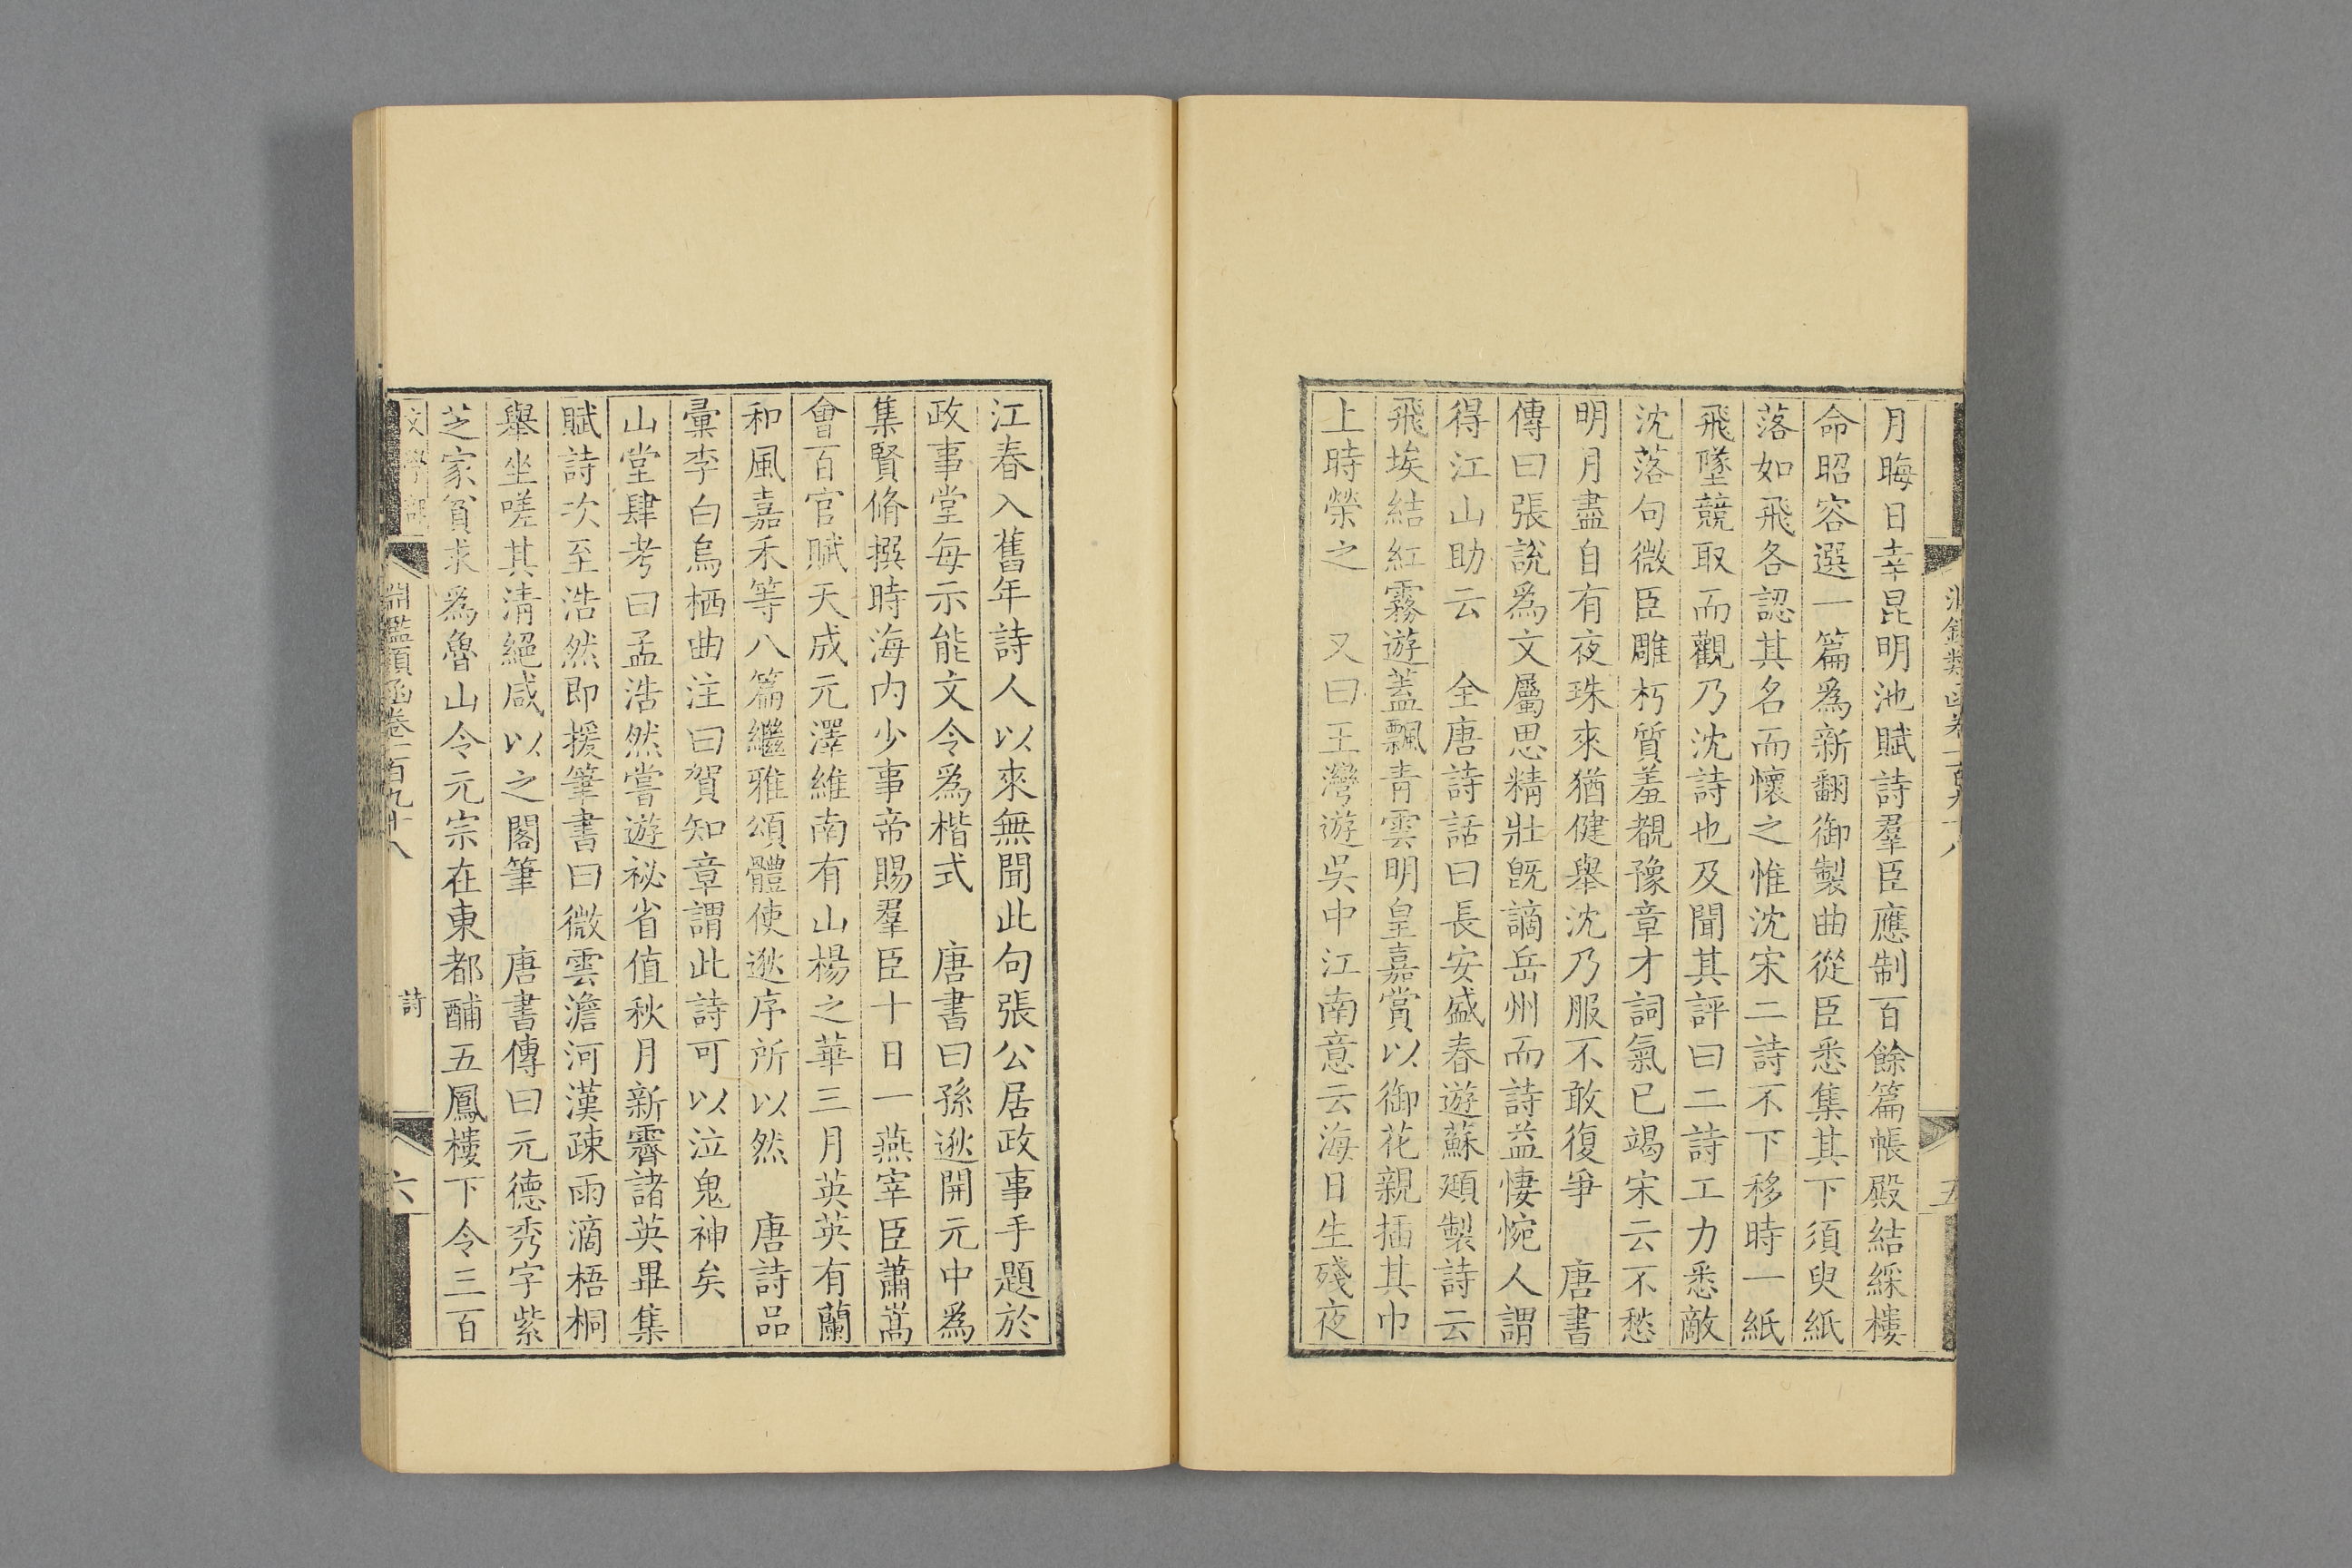 月晦日幸昆明池賦詩羣臣應制百餘篇帳殿結綵樓
命昭容選一篇爲新翻御製曲從臣悉集其下須臾紙
落如飛各認其名而懷之惟沈宋二詩不下移時一紙
飛墜競取而觀乃沈詩也及聞其評曰二詩工力悉敵
沈落句微臣雕朽質羞覩豫章才詞氣已竭宋云不愁
明月盡自有夜珠來猶健舉沈乃服不敢復爭　唐書
傳曰張說爲文屬思精壯旣謫岳州而詩益悽惋人謂
得江山助云　全唐詩話曰長安盛春遊蘇頲製詩云
飛埃結紅霧遊蓋飄青雲明皇嘉賞以御花親插其巾
上時榮之　又曰王灣遊吳中江南意云海日生殘夜
江春入舊年詩人以來無聞此句張公居政事手題於
政事堂每示能文令爲楷式　唐書曰孫逖開元中爲
集賢脩撰時海內少事帝賜羣臣十日一燕宰臣蕭嵩
會百官賦天成元澤維南有山楊之華三月英英有蘭
和風嘉禾等八篇繼雅頌體使逖序所以然　唐詩品
彙李白烏栖曲注曰賀知章謂此詩可以泣鬼神矣
山堂肆考曰孟浩然嘗遊祕省值秋月新霽諸英畢集
賦詩次至浩然即援筆書曰微雲澹河漢疎雨滴梧桐
舉坐嗟其清絕咸以之閣筆　唐書傳曰元德秀字紫
芝家貧求爲魯山令元宗在東都酺五鳳樓下令三百
淵鑑類函卷一百九十八
詩
六